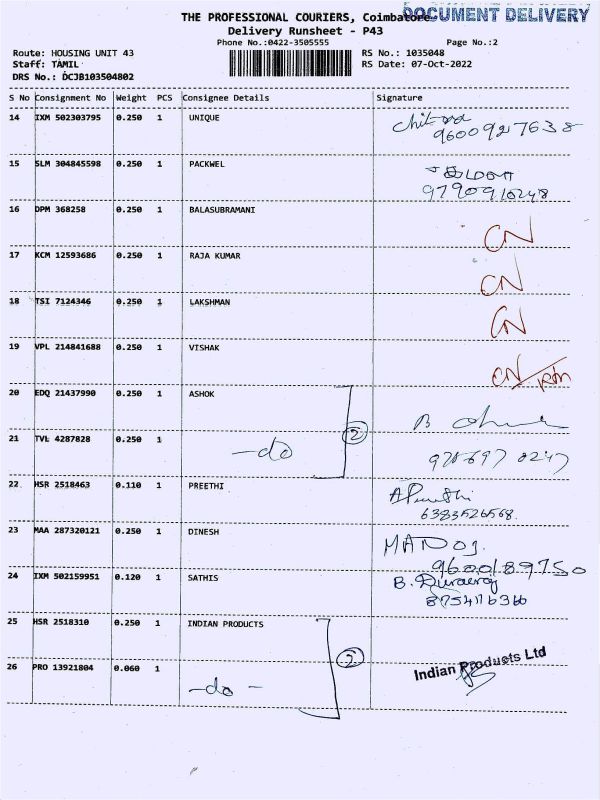 THE PROFESSIONAL COURIERS, Coimbatore
DOCUMENT DELIVERY
Delivery Runsheet - P43
Phone No.:0422-3505555
Page No.:2
Route: HOUSING UNIT 43
RS No.: 1035048
Staff: TAMIL
RS Date: 07-Oct-2022
DRS No.: DCJB103504802
S No Consignment No Weight PCS Consignee Details Signature
14 IXM 502303795 0.250 1 UNIQUE
9600927638
15 SLM 304845598 0.250 1 PACKWEL
9790910248
16 DPM 368258 0.250 1 BALASUBRAMANI CN
17 KCM 12593686 0.250 1 RAJA KUMAR CN
18 TSI 7124346 0.250 1 LAKSHMAN CN
19 VPL 214841688 0.250 1 VISHAK CN
20 EDQ 21437990 0.250 1 ASHOK
2
21 TVL 4287828 0.250 1 -do
22 HSR 2518463 0.110 1 PREETHI
6383526568
23 MAA 287320121 0.250 1 DINESH MANOJ.
9600189750
24 IXM 502159951 0.120 1 SATHIS B. Durairaj
25 HSR 2518310 0.250 1 INDIAN PRODUCTS
2
26 PRO 13921804 0.060 1 Indian Products Ltd
-do -